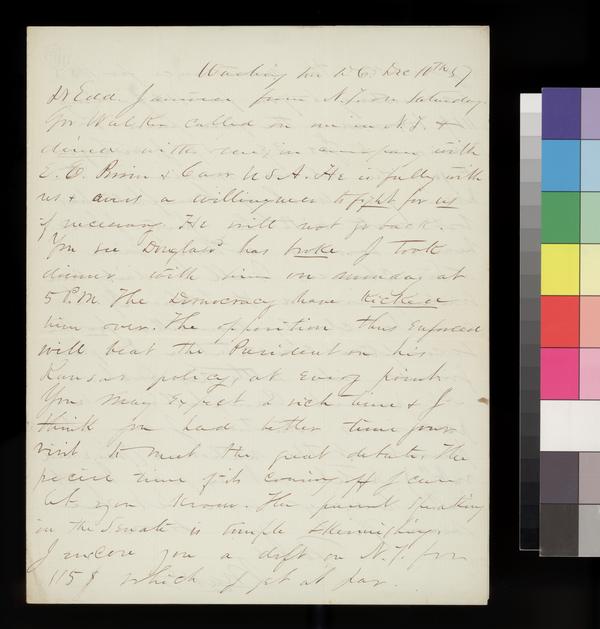 Washington D.C. Dec 10th 57
Dr Edd. I arrived from N.Y. on Saturday.
Gov Walker called on me in N.Y. &
dined with me in company with
& Carr U.S.A. He is fully with
us & avers a willingness to fight for us
if necessary. He will not go back.
You see Douglass has broke. I took
dinner with him on monday at
5 P.M. The Democracy have Kicked
him over. The opposition thus Enforced
will beat the President on his
Kansas policy, at Every point.
You may Expect a rich time & I
think you had better time your
visit to meet the great debate. The
precise time of its coming off I can
let you Know. The present Speaking
in the Senate is simple Skirmishing.
I inclose you a dft on N.Y. for
115$ which I get at par.